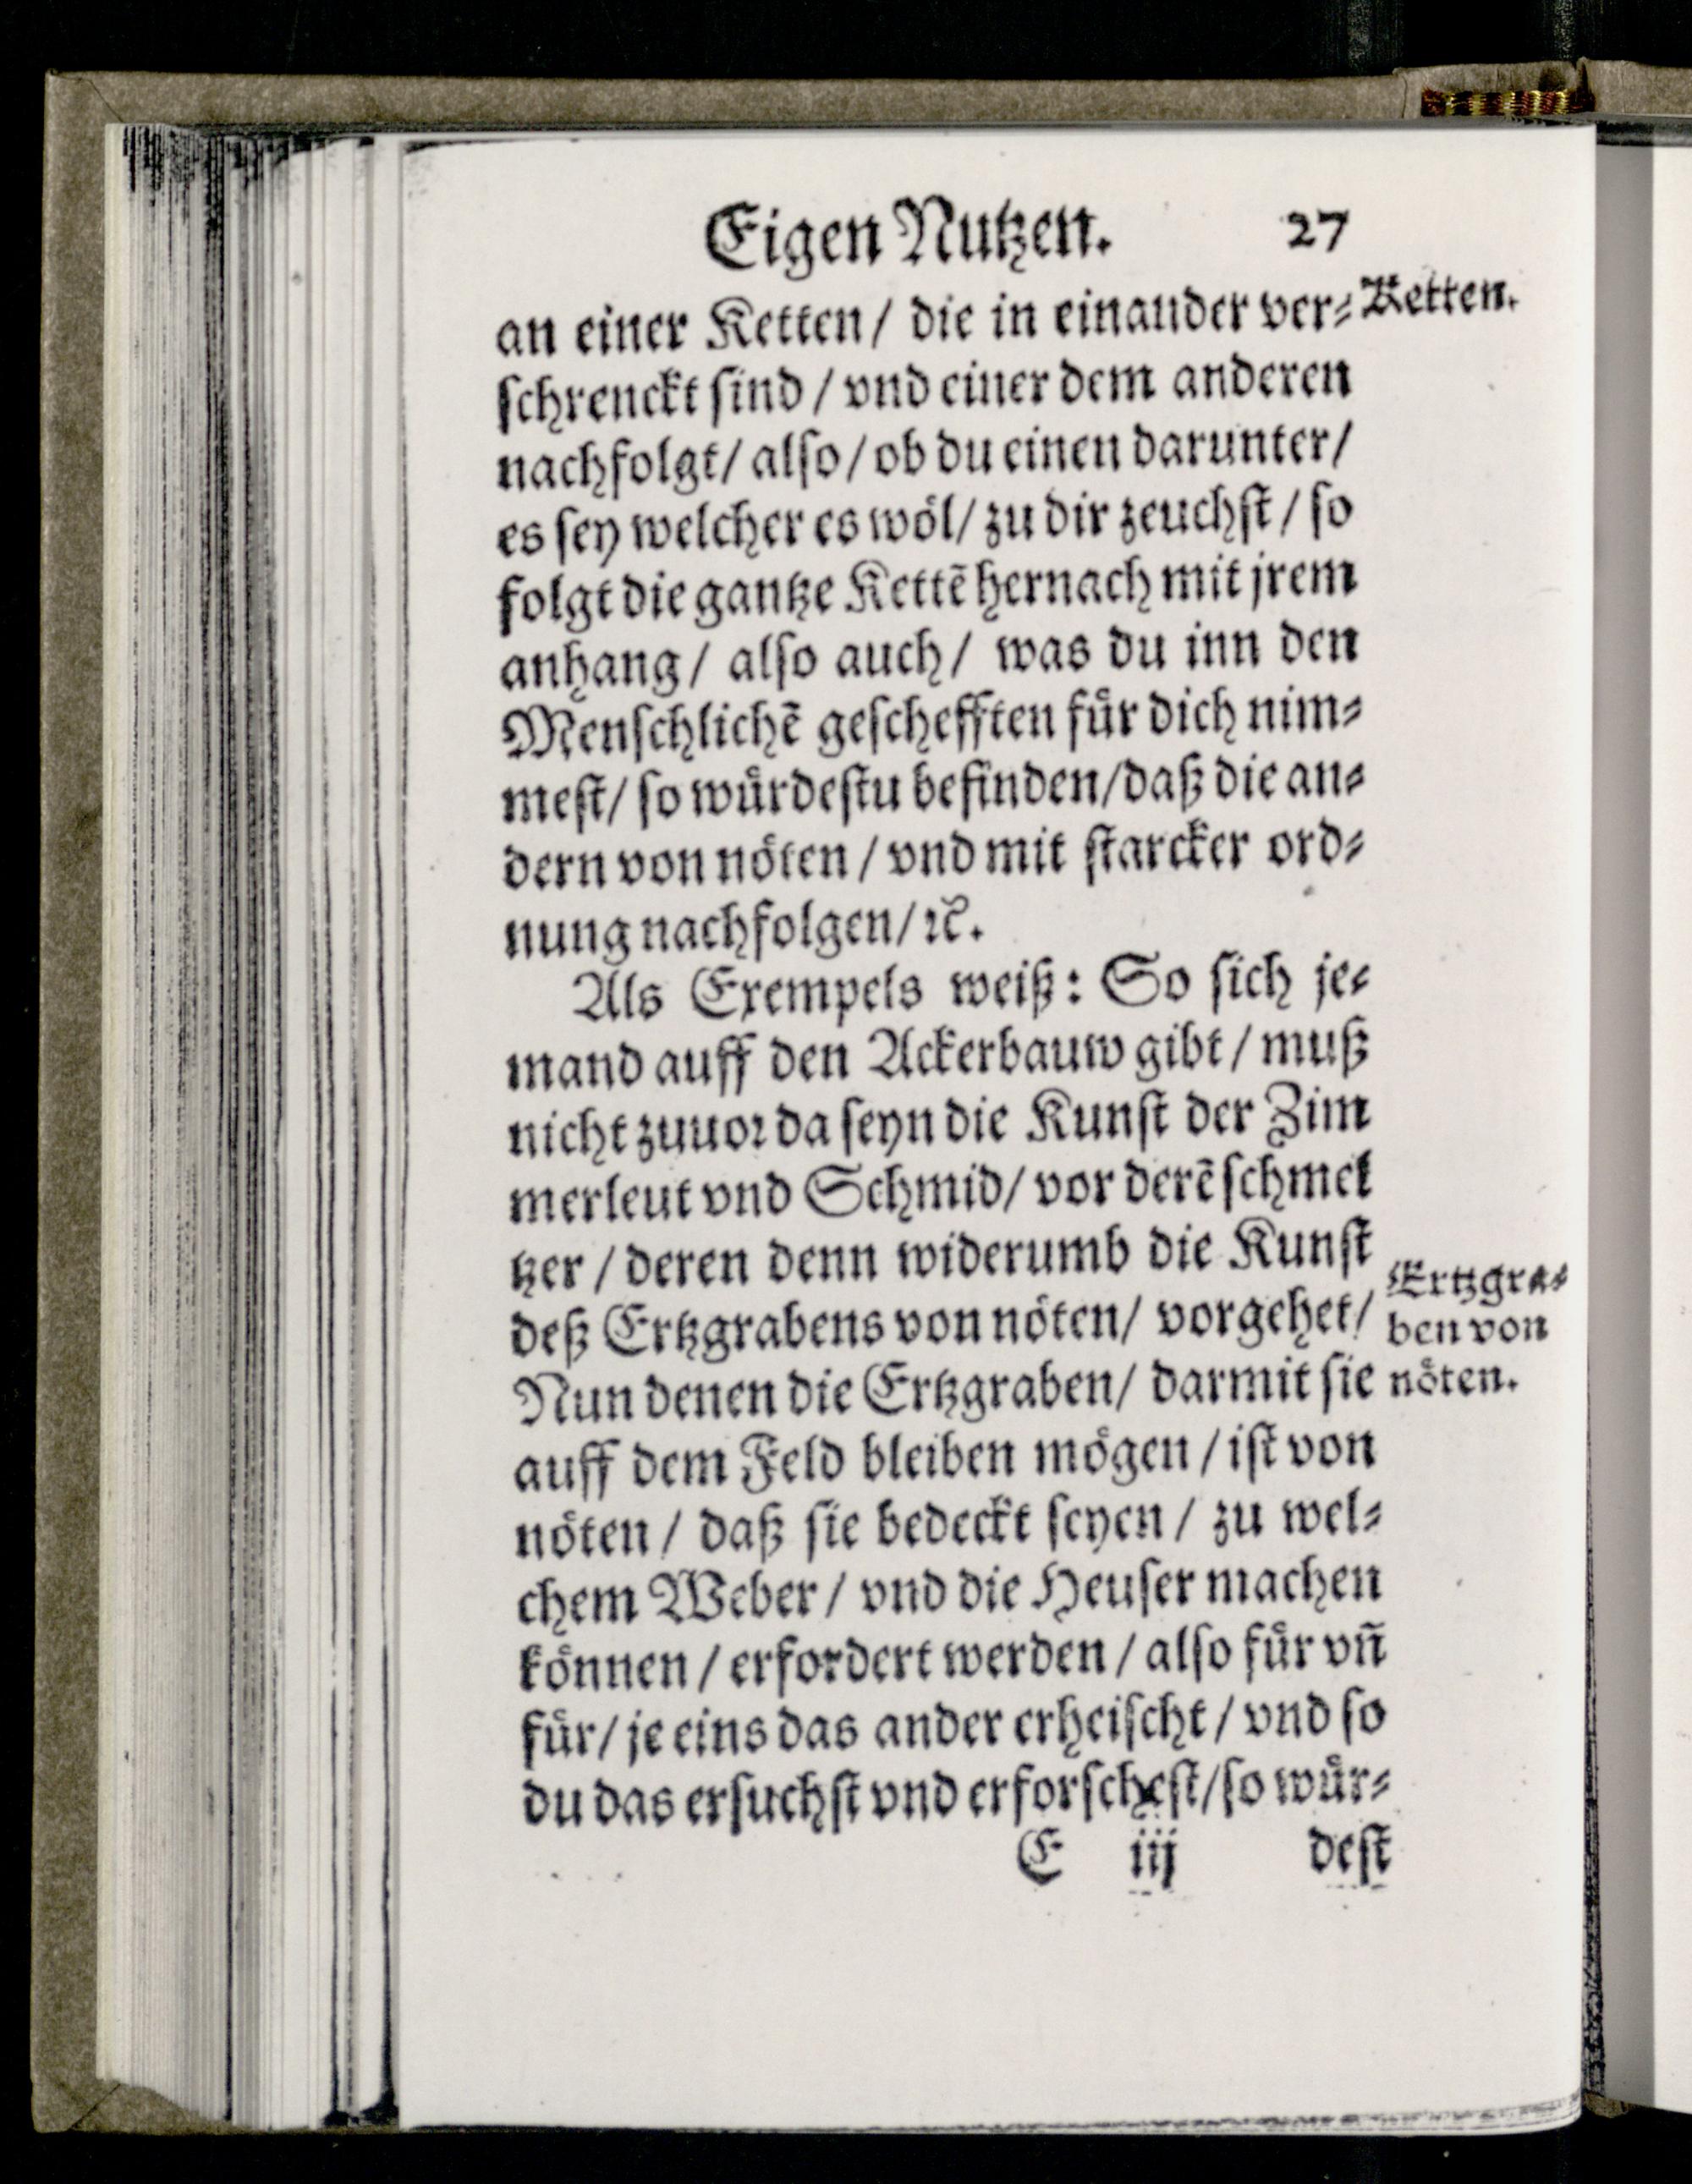 Eigen Nutzen. 27
an einer Ketten/ die in einauder ver⸗
Ketten.
ſchrenckt ſind / vnd einer dem anderen
nachfolgt/ alſo / ob du einen darunter/
es ſey welcher es woͤl/ zu dir zeuchſt / ſo
folgt die gantze Kettē hernach mit jrem
anhang/ alſo auch/ was du inn den
Menſchlichē geſchefften fuͤr dich nim⸗
meſt/ ſo wuͤrdeſtu befinden/ daß die an⸗
dern von noͤten / vnd mit ſtarcker ord⸗
nung nachfolgen/ ꝛc̃.
Als Exempels weiß: So ſich je⸗
mand auff den Ackerbauw gibt / muß
nicht zuuoꝛ da ſeyn die Kunſt der Zim
merleut vnd Schmid/ vor derē ſchmel
tzer / deren denn widerumb die Kunſt
deß Ertzgrabens von noͤten/ vorgehet/
Nun denen die Ertzgraben/ darmit ſie
Ertzgra⸗
ben von
noͤten.
auff dem Feld bleiben moͤgen / iſt von
noͤten / daß ſie bedeckt ſeyen / zu wel⸗
chem Weber / vnd die Heuſer machen
koͤnnen / erfordert werden / alſo fuͤr vñ
fuͤr/ je eins das ander erheiſcht / vnd ſo
du das erſuchſt vnd erforſcheſt/ ſo wuͤr⸗
E iij deſt